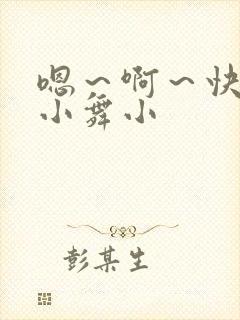 嗯～啊～快
小舞小
彭某生